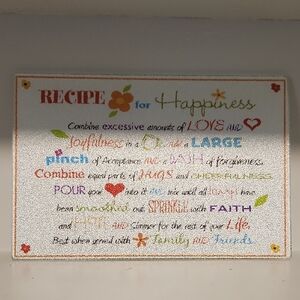 RECIPE for Happiness
Combine excessive amounts of LOVE AND
Joyfulness in a AND a LARGE
pinch of Acceptance AND a DASH of forgiveness.
Combine equal parts of HUGS and CHEERFULNESS.
POUR you into it AND mix until all have
been smoothed out. SPRINKLE with FAITH
and and Simmer for the rest of your Life.
Best when served with Family AND Friends.